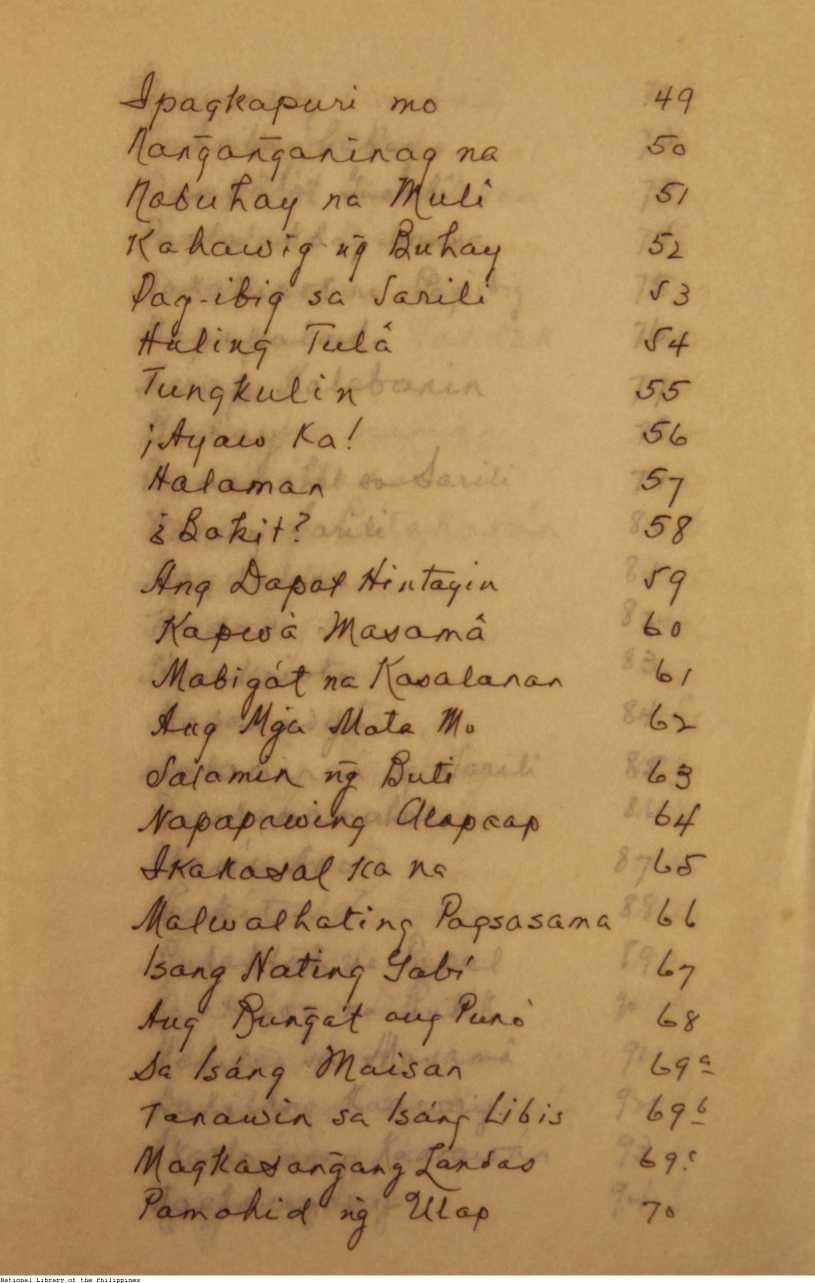 Ipagkapuri mo 49
Nang̃ang̃aninag na 50
Nabuhay na Mulî 51
Kahawig ng̃ Buhay 52
Pag-ibig sa Sarili 53
Huling Tulâ 54
Tungkulin 55
¡Ayaw Ka! 56
Halaman 57
¿Bakit? 58
Ang Dapat Hintayin 59
Kapwà Masamâ 60
Mabigát na Kasalanan 61
Ang Mg̃a Mata Mo 62
Salamin ng̃ Buti 63
Napapawing Alapaap 64
Ikakasal Ka na 65
Malwalhating Pagsasama 66
Isang Nating Gabí 67
Ang Bung̃a't ang Punò 68
Sa Isáng Maisan 69a
Tanawin sa Isáng Libis 69b
Magkasang̃ang Landas 69c
Pamahid ng̃ Ulap 70
National Library of the Philippines